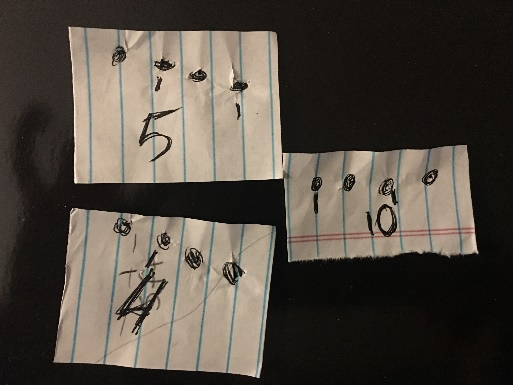 5
10
4